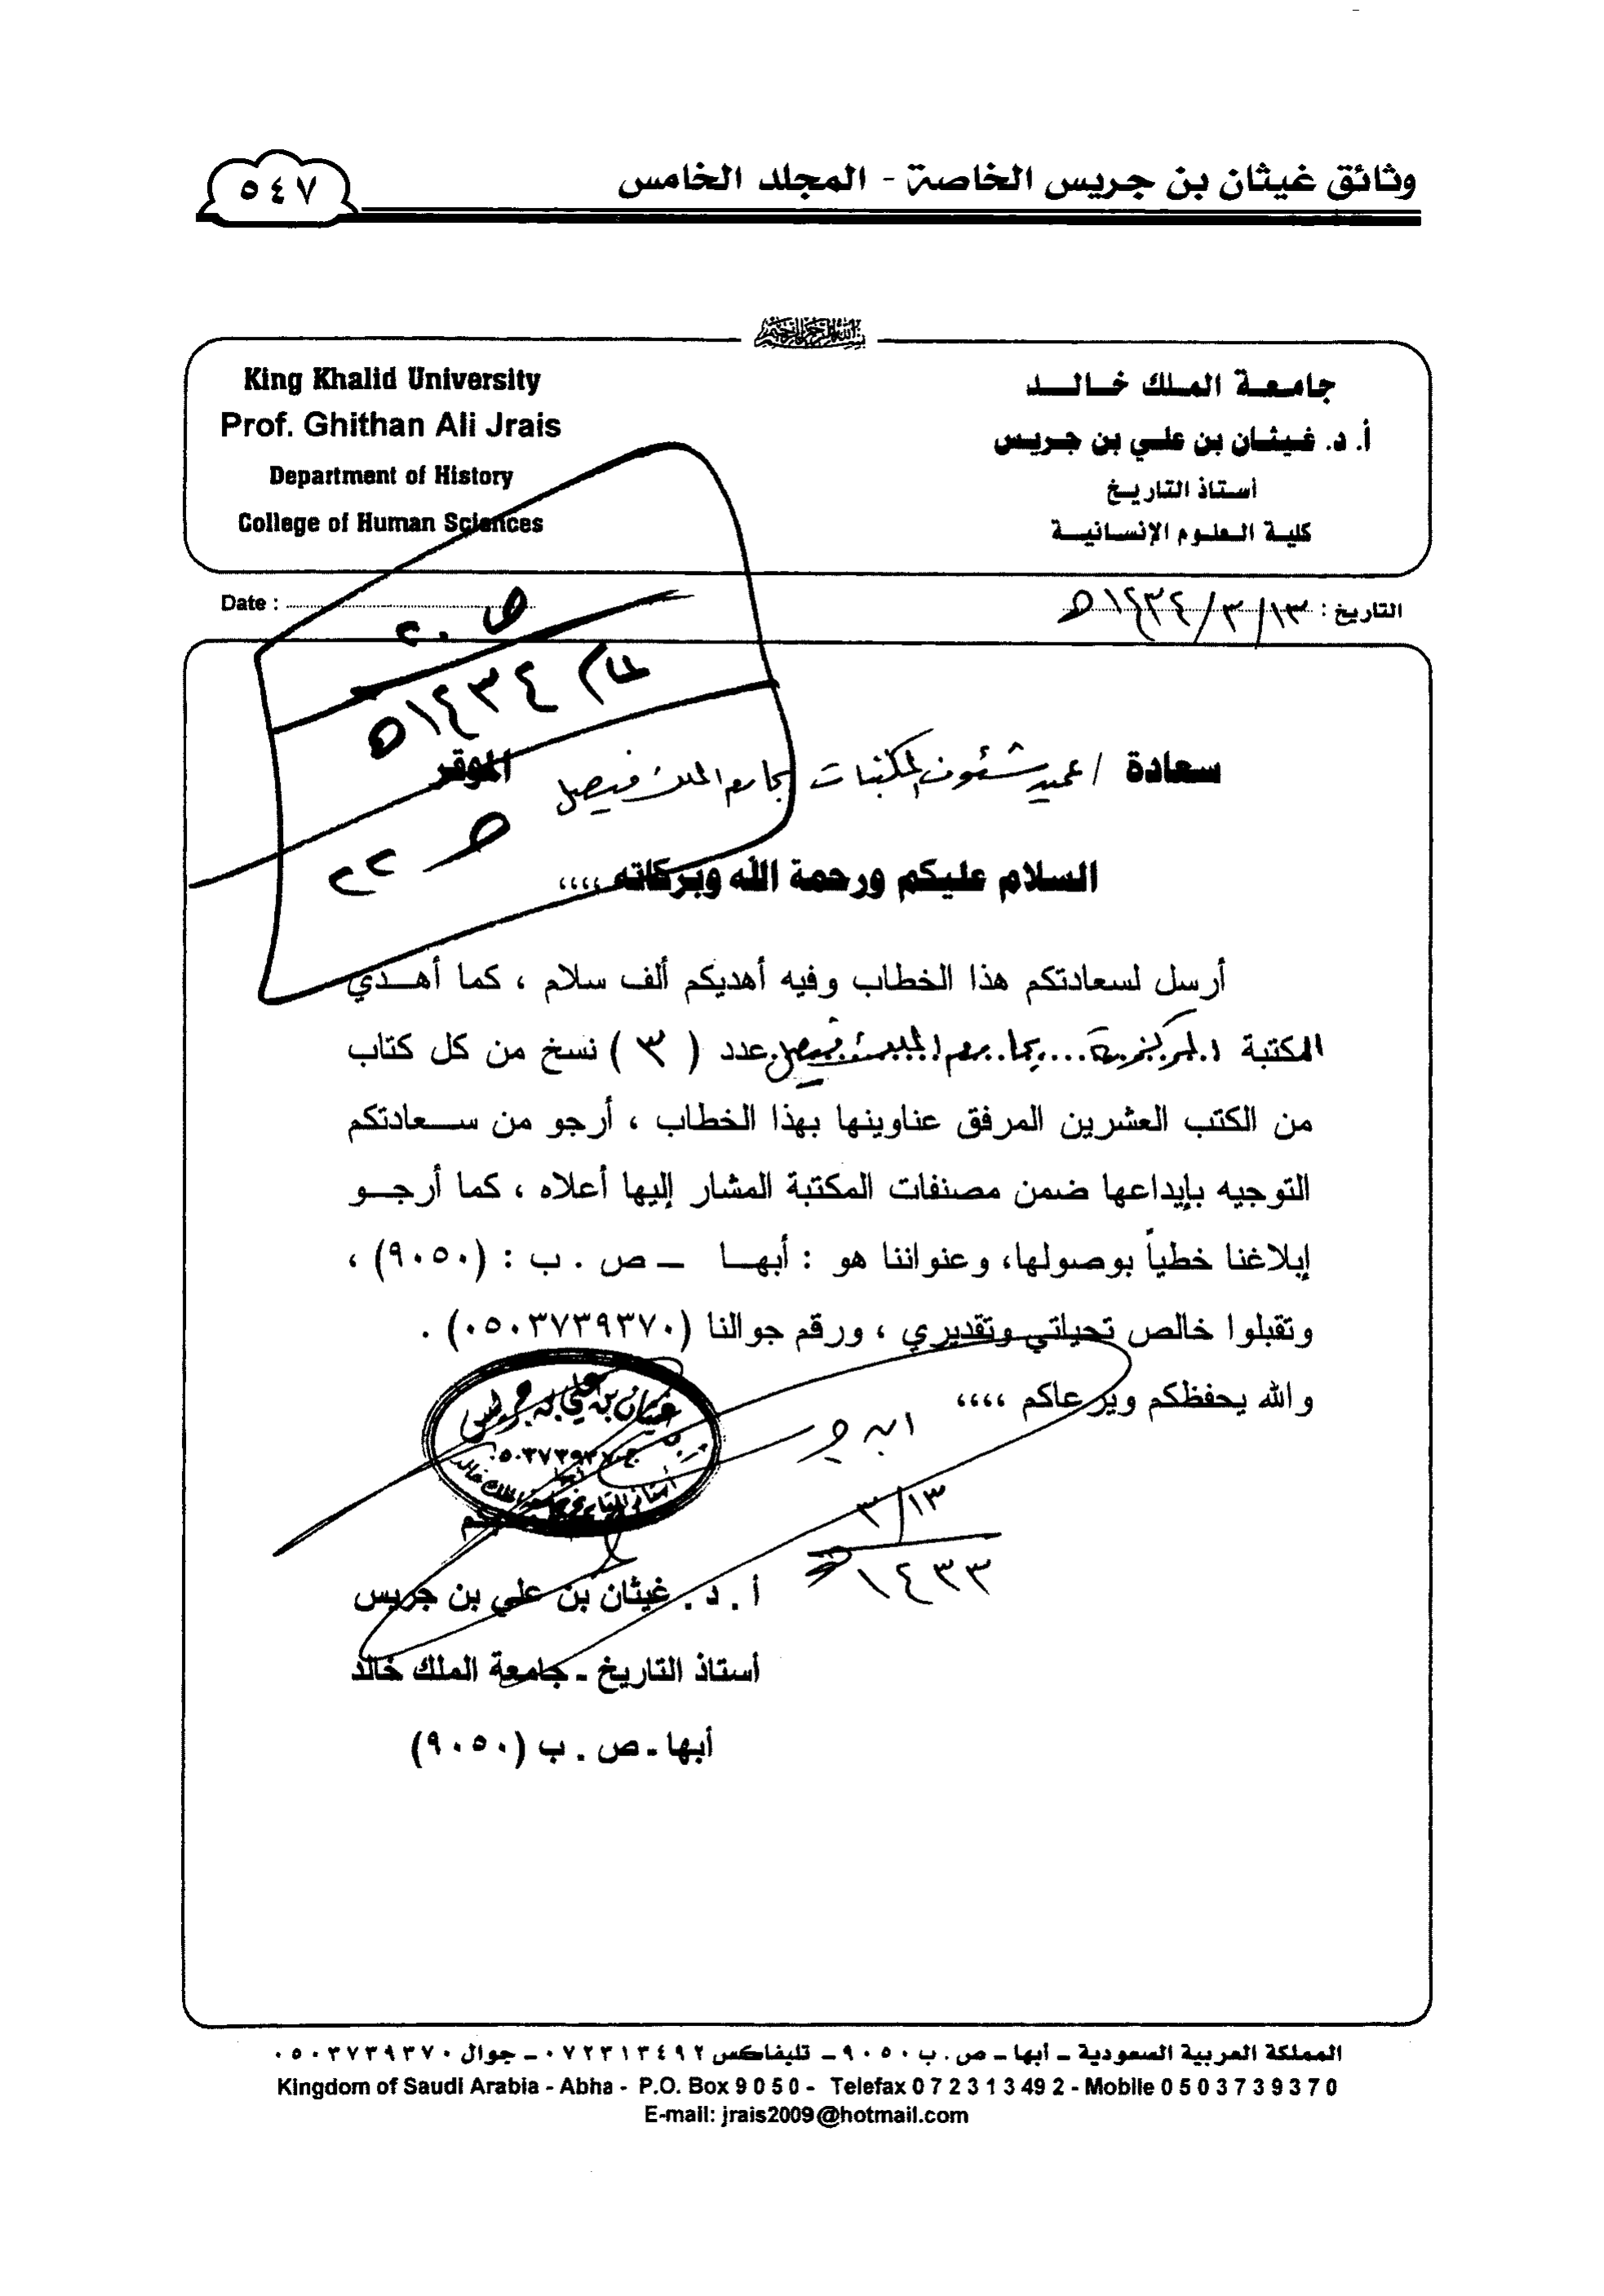 وثائق غيثان بن جريس الخاصة - المجلد الخامس
٥٤٧
بسم الله الرحمن الرحيم
جامعة الملك خالد
أ. د. غيثان بن علي بن جريس
أستاذ التاريخ
كلية العلوم الإنسانية
King Khalid University
Prof. Ghithan Ali Jrais
Department of History
College of Human Sciences
التاريخ : ١٣/٣/١٤٣٤هـ
Date :
ص ٢٠
عام ١٤٣٤هـ
ص ٢٢
سعادة / عميد شئون المكتبات بجامعة الملك فيصل الموقر
السلام عليكم ورحمة الله وبركاته ،،،،
أرسل لسعادتكم هذا الخطاب وفيه أهديكم ألف سلام ، كما أهدي
المكتبة المركزية بجامعة الملك فيصل عدد ( ٣ ) نسخ من كل كتاب
من الكتب العشرين المرفق عناوينها بهذا الخطاب ، أرجو من سعادتكم
التوجيه بإيداعها ضمن مصنفات المكتبة المشار إليها أعلاه ، كما أرجو
إبلاغنا خطياً بوصولها، وعنواننا هو : أبها – ص . ب : (٩٠٥٠) ،
وتقبلوا خالص تحياتي وتقديري ، ورقم جوالنا (٠٥٠٣٧٣٩٣٧٠) .
والله يحفظكم ويرعاكم ،،،،
غيثان بن علي بن جريس
٠٥٠٣٧٣٩٣٧٠
١٣/٣
١٤٣٣هـ
أ . د . غيثان بن علي بن جريس
أستاذ التاريخ - جامعة الملك خالد
أبها - ص . ب (٩٠٥٠)
المملكة العربية السعودية – أبها – ص . ب ٩٠٥٠ – تليفاكس ٠٧٢٣١٣٤٩٢ – جوال ٠٥٠٣٧٣٩٣٧٠
Kingdom of Saudi Arabia - Abha - P.O. Box 9 0 5 0 - Telefax 0 7 2 3 1 3 49 2 - Mobile 0 5 0 3 7 3 9 3 7 0
E-mail: jrais2009@hotmail.com